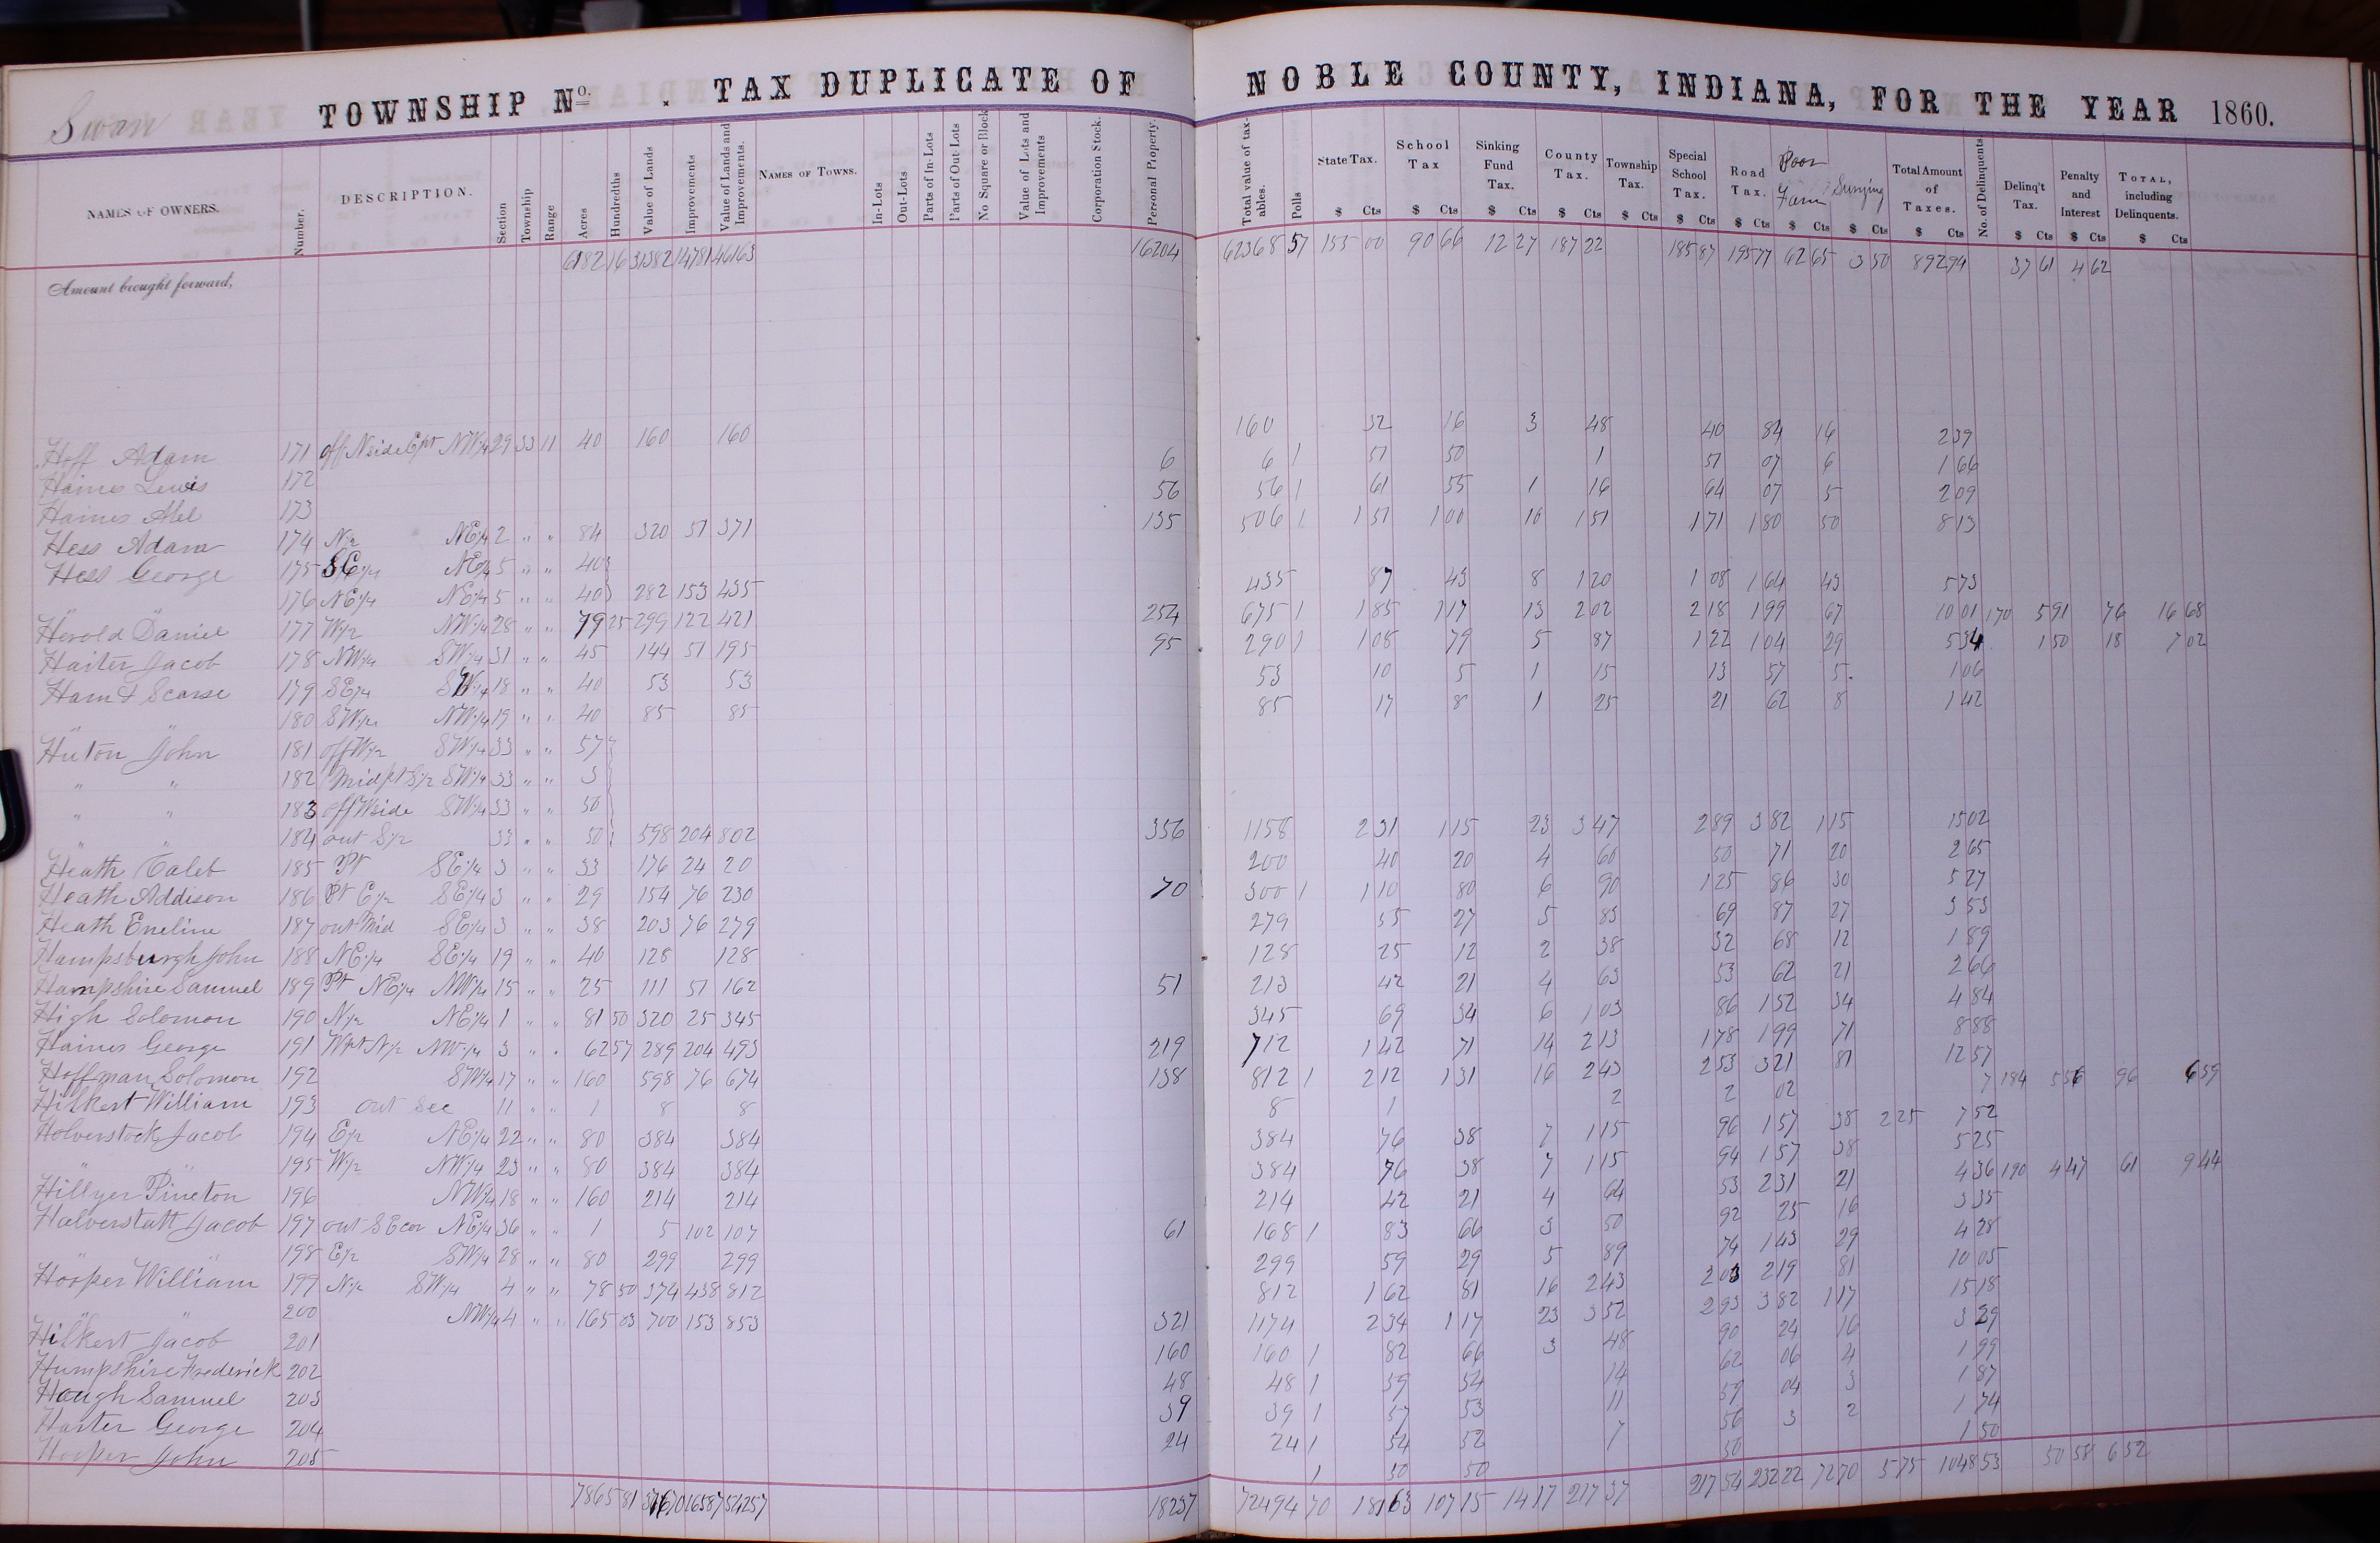 Swan TOWNSHIP No. . TAX DUPLICATE OF NOBLE COUNTY, INDIANA, FOR THE YEAR 1860.
NAMES OF OWNERS. Number. DESCRIPTION. Section Township Range Acres Hundredths Value of Lands Improvements Value of Lands and Improvements. NAMES OF TOWNS. In-Lots Out-Lots Parts of In-Lots Parts of Out-Lots No Square or Block Value of Lots and Improvements Corporation Stock. Personal Property. Total value of taxables. Polls State Tax. School Tax Sinking Fund Tax. County Tax. Township Tax. Special School Tax. Road Tax. Poor Farm Total Amount of Taxes. No. of Delinquents Delinq't Tax. Penalty and Interest TOTAL, including Delinquents.
$ Cts $ Cts $ Cts $ Cts $ Cts $ Cts $ Cts $ Cts $ Cts $ Cts $ Cts $ Cts $ Cts
Amount brought forward, 6182 16 31382 14781 46163 16204 62368 57 155 00 90 66 12 27 187 22 185 87 195 77 62 65 3 50 892 94 37 61 4 62
Hoff Adam 171 off N side E pt NW 1/4 29 33 11 40 160 160 160 32 16 3 48 40 84 16 2 39
Haines Lewis 172 6 6 1 51 50 1 51 07 6 1 66
Haines Abel 173 56 56 1 61 55 1 16 64 07 5 2 09
Hess Adam 174 N 1/2 NE 1/4 2 " " 84 320 51 371 135 506 1 1 51 1 00 10 1 51 1 71 1 80 50 8 13
Hess George 175 SE 1/4 NE 1/4 5 " " 40
" " 176 NE 1/4 NE 1/4 5 " " 40 282 153 435 435 87 43 8 1 20 1 08 1 64 43 5 73
Herold Daniel 177 W 1/2 NW 1/4 28 " " 79 25 299 122 421 254 675 1 1 85 1 17 13 2 02 2 18 1 99 67 10 01 170 5 91 76 16 68
Haiter Jacob 178 NW 1/4 SW 1/4 31 " " 45 144 51 195 95 290 1 1 08 79 5 87 1 22 1 04 29 5 34 1 50 18 7 02
Ham & Scarse 179 SE 1/4 SW 1/4 18 " " 40 53 53 53 10 5 1 15 13 57 5 1 06
" " 180 SW 1/4 NW 1/4 19 " " 40 85 85 85 17 8 1 25 21 62 8 1 42
Huton John 181 off W 1/2 SW 1/4 33 " " 57
" " 182 Mid pt S 1/2 SW 1/4 33 " " 3
" " 183 off W side SW 1/4 33 " " 50
" " 184 out S 1/2 33 " " 50 598 204 802 356 1158 2 31 1 15 23 3 47 2 89 3 82 1 15 15 02
Heath Caleb 185 Pt SE 1/4 3 " " 33 176 24 20 200 40 20 4 60 50 71 20 2 65
Heath Addison 186 Pt E 1/2 SE 1/4 3 " " 29 154 76 230 70 300 1 1 10 80 6 90 1 25 86 30 5 27
Heath Eneline 187 out Mid SE 1/4 3 " " 38 203 76 279 279 55 27 5 83 69 87 27 3 53
Hampsburgh John 188 NE 1/4 SE 1/4 19 " " 40 128 128 128 25 12 2 38 32 68 12 1 89
Hampshire Samuel 189 Pt NE 1/4 NW 1/4 15 " " 25 111 51 162 51 213 42 21 4 63 53 62 21 2 66
High Solomon 190 N 1/2 NE 1/4 1 " " 81 50 320 25 345 345 69 34 6 1 03 86 1 52 34 4 84
Haines George 191 W pt N 1/2 NW 1/4 3 " " 62 57 289 204 493 219 712 1 42 71 14 2 13 1 78 1 99 71 8 88
Hoffman Solomon 192 SW 1/4 17 " " 160 598 76 674 138 812 1 2 12 1 31 16 2 43 2 53 3 21 81 12 57
Hilkert William 193 out Sec 11 " " 1 8 8 8 1 2 2 02 7 184 5 56 96 6 59
Holverstock Jacob 194 E 1/2 NE 1/4 22 " " 80 384 384 384 76 38 7 1 15 96 1 57 38 2 25 7 52
" " 195 W 1/2 NW 1/4 23 " " 80 384 384 384 76 38 7 1 15 94 1 57 38 5 25
Hillyer Pineton 196 NW 1/4 18 " " 160 214 214 214 42 21 4 64 53 2 31 21 4 36 190 4 47 61 9 44
Halverstatt Jacob 197 out SE cor NE 1/4 36 " " 1 5 102 107 61 168 1 83 66 3 50 92 25 16 3 35
" " 198 E 1/2 SW 1/4 28 " " 80 299 299 299 59 29 5 89 74 1 43 29 4 28
Hooper William 199 N 1/2 SW 1/4 4 " " 78 50 374 438 812 812 1 62 81 16 2 43 2 03 2 19 81 10 05
" " 200 NW 1/4 4 " " 165 03 700 153 853 321 1174 2 34 1 17 23 3 52 2 93 3 82 1 17 15 18
Hilkert Jacob 201 160 160 1 82 66 3 48 90 24 16 3 29
Humpshire Frederick 202 48 48 1 59 54 14 62 06 4 1 99
Hough Samuel 203 39 39 1 57 53 11 59 04 3 1 87
Harter George 204 24 24 1 54 52 7 56 3 2 1 74
Hooper John 205 1 50 50 50 1 50
7865 81 37670 16587 54257 18237 72494 70 181 63 107 15 14 17 217 37 217 54 232 22 72 70 5 75 1048 53 50 58 6 52